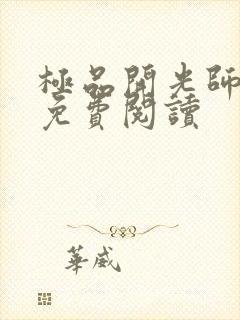 極品開光師
免費閱讀
華威